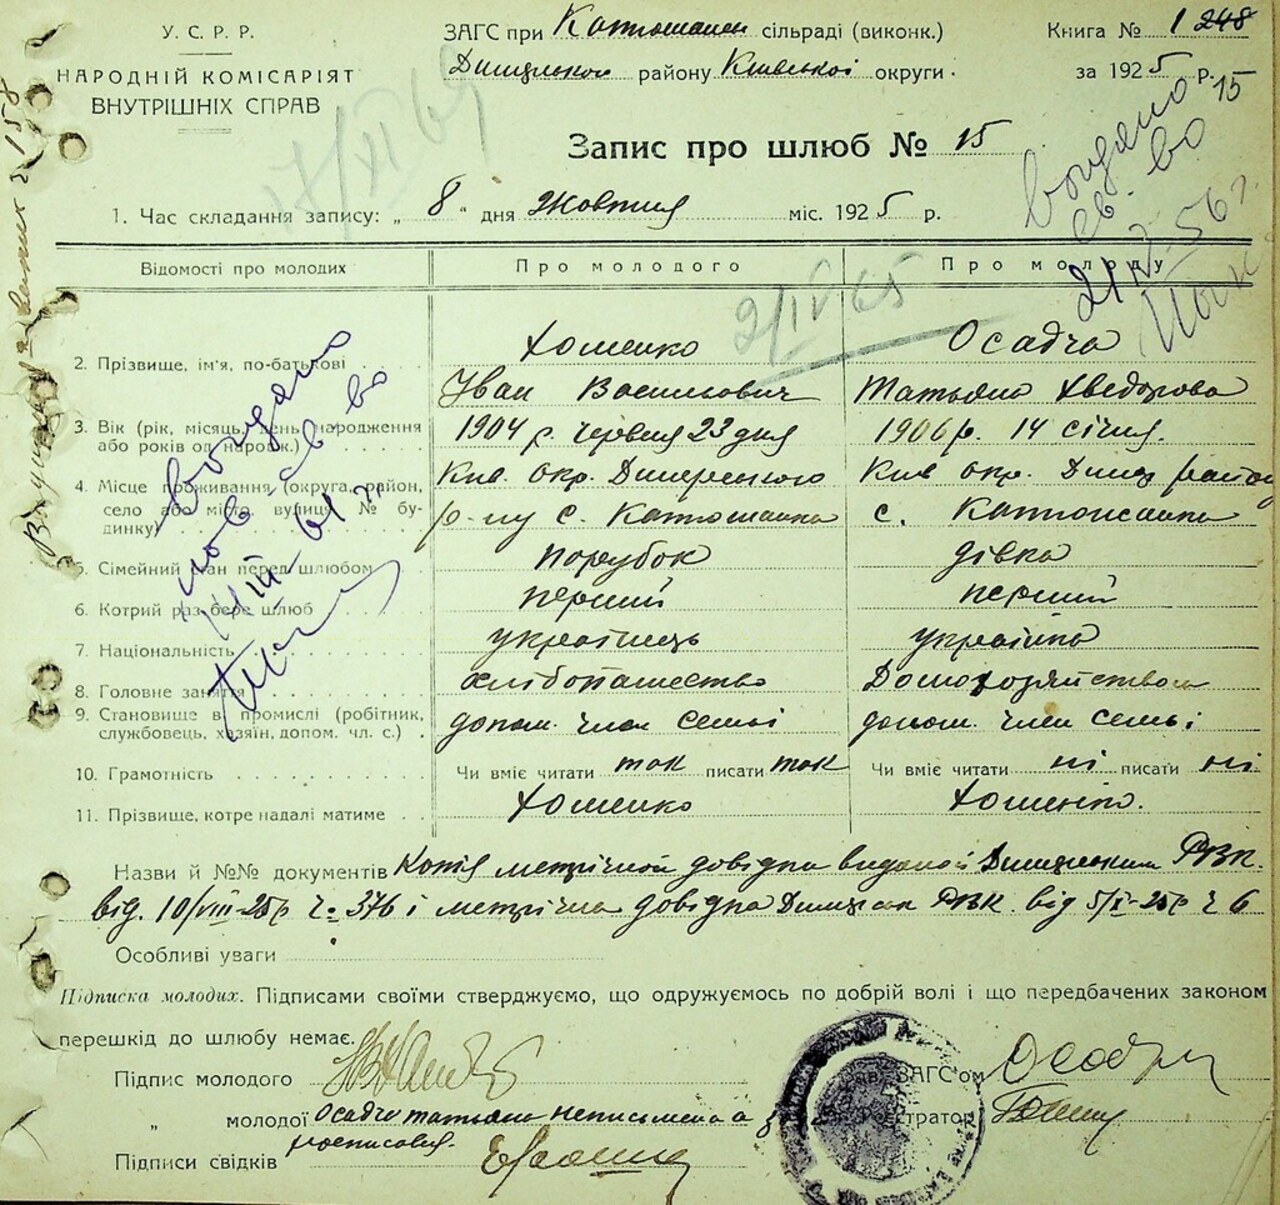 У. С. Р. Р.
НАРОДНІЙ КОМІСАРІЯТ
ВНУТРІШНІХ СПРАВ
ЗАГС при Катюшанск сільраді (виконк.)
Димерського району Київської округи.
Книга № 1 248
за 1925 р. 15
Запис про шлюб № 15
1. Час складання запису: „ 8 “ дня Жовтня міс. 1925 р.
Відомості про молодих
Про молодого
Про молоду
2. Прізвище, ім'я, по-батькові
Хоменко
Іван Васильович
Осадча
Татьяна Хведорова
3. Вік (рік, місяць, день народження або років од нарож.)
1904 р. червня 23 дня
1906 р. 14 січня.
4. Місце проживання (округа, район, село або місто, вулиця, № будинку)
Київ. окр. Димерського
р-ну с. Катюшанка
Київ окр. Димер району
с. Катюжанка
5. Сімейний стан перед шлюбом
парубок
дівка
6. Котрий раз бере шлюб
перший
перший
7. Національність
українець
українка
8. Головне заняття
хлібопашество
Домохозяйством
9. Становище в промислі (робітник, службовець, хазяїн, допом. чл. с.)
допом. член семьі
допом. член семьі
10. Грамотність
Чи вміє читати так писати так
Чи вміє читати ні писати ні
11. Прізвище, котре надалі матиме
Хоменко
Хоменко.
Назви й №№ документів Копія метрічной довідка виданой Димерським РВК.
від. 10/VIII-25р ч. 376 і метрічна довідка Димерськ РВК. від 5/X-25р ч 6
Особливі уваги
Підписка молодих. Підписами своїми стверджуємо, що одружуємось по добрій волі і що передбачених законом
перешкід до шлюбу немає.
Підпис молодого
Зав. ЗАГС'ом
„ молодої Осадча татьяна неписьмена а
росписовся.
Реєстратор
Підписи свідків
17/XI 65
2/IV 65
Видано
св. во
21/X-56 г.
Видано
пов. св во